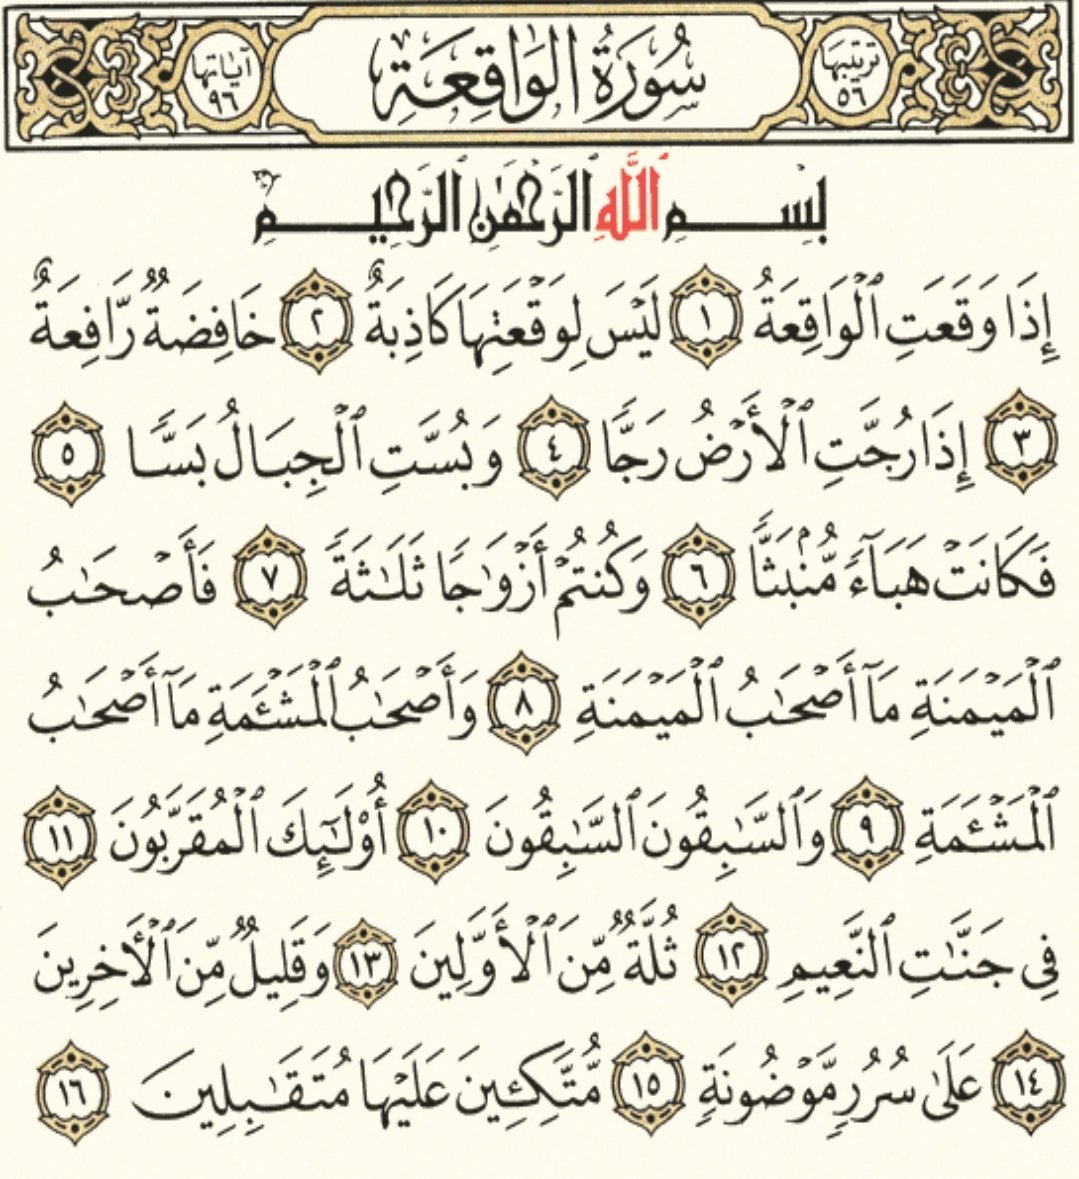 ترتيبها ٥٦
سُورَةُ الوَاقِعَةِ
آياتها ٩٦
بِسْمِ ٱللَّهِ ٱلرَّحْمَٰنِ ٱلرَّحِيمِ
إِذَا وَقَعَتِ ٱلْوَاقِعَةُ ١ لَيْسَ لِوَقْعَتِهَا كَاذِبَةٌ ٢ خَافِضَةٌ رَّافِعَةٌ
٣ إِذَا رُجَّتِ ٱلْأَرْضُ رَجًّا ٤ وَبُسَّتِ ٱلْجِبَالُ بَسًّا ٥
فَكَانَتْ هَبَآءً مُّنۢبَثًّا ٦ وَكُنتُمْ أَزْوَٰجًا ثَلَٰثَةً ٧ فَأَصْحَٰبُ
ٱلْمَيْمَنَةِ مَآ أَصْحَٰبُ ٱلْمَيْمَنَةِ ٨ وَأَصْحَٰبُ ٱلْمَشْـَٔمَةِ مَآ أَصْحَٰبُ
ٱلْمَشْـَٔمَةِ ٩ وَٱلسَّٰبِقُونَ ٱلسَّٰبِقُونَ ١٠ أُو۟لَٰٓئِكَ ٱلْمُقَرَّبُونَ ١١
فِى جَنَّٰتِ ٱلنَّعِيمِ ١٢ ثُلَّةٌ مِّنَ ٱلْأَوَّلِينَ ١٣ وَقَلِيلٌ مِّنَ ٱلْأَخِرِينَ
١٤ عَلَىٰ سُرُرٍ مَّوْضُونَةٍ ١٥ مُّتَّكِـِٔينَ عَلَيْهَا مُتَقَٰبِلِينَ ١٦